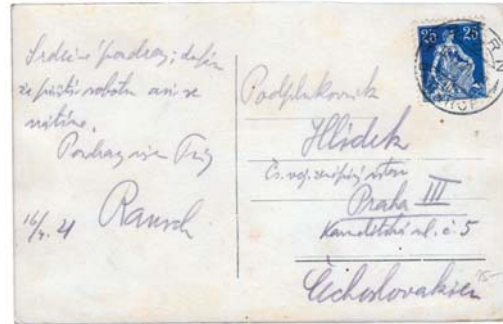 Srdečné pozdravy; doufám
že příští sobotu asi se
vrátíme.
Pozdravuje
Rausch
16/4. 21
25 25
Podplukovník
Hlídek
Čs. voj. zeměpisný ústav
Praha III
Karmelitská ul. č. 5
Čechoslovakien
15-